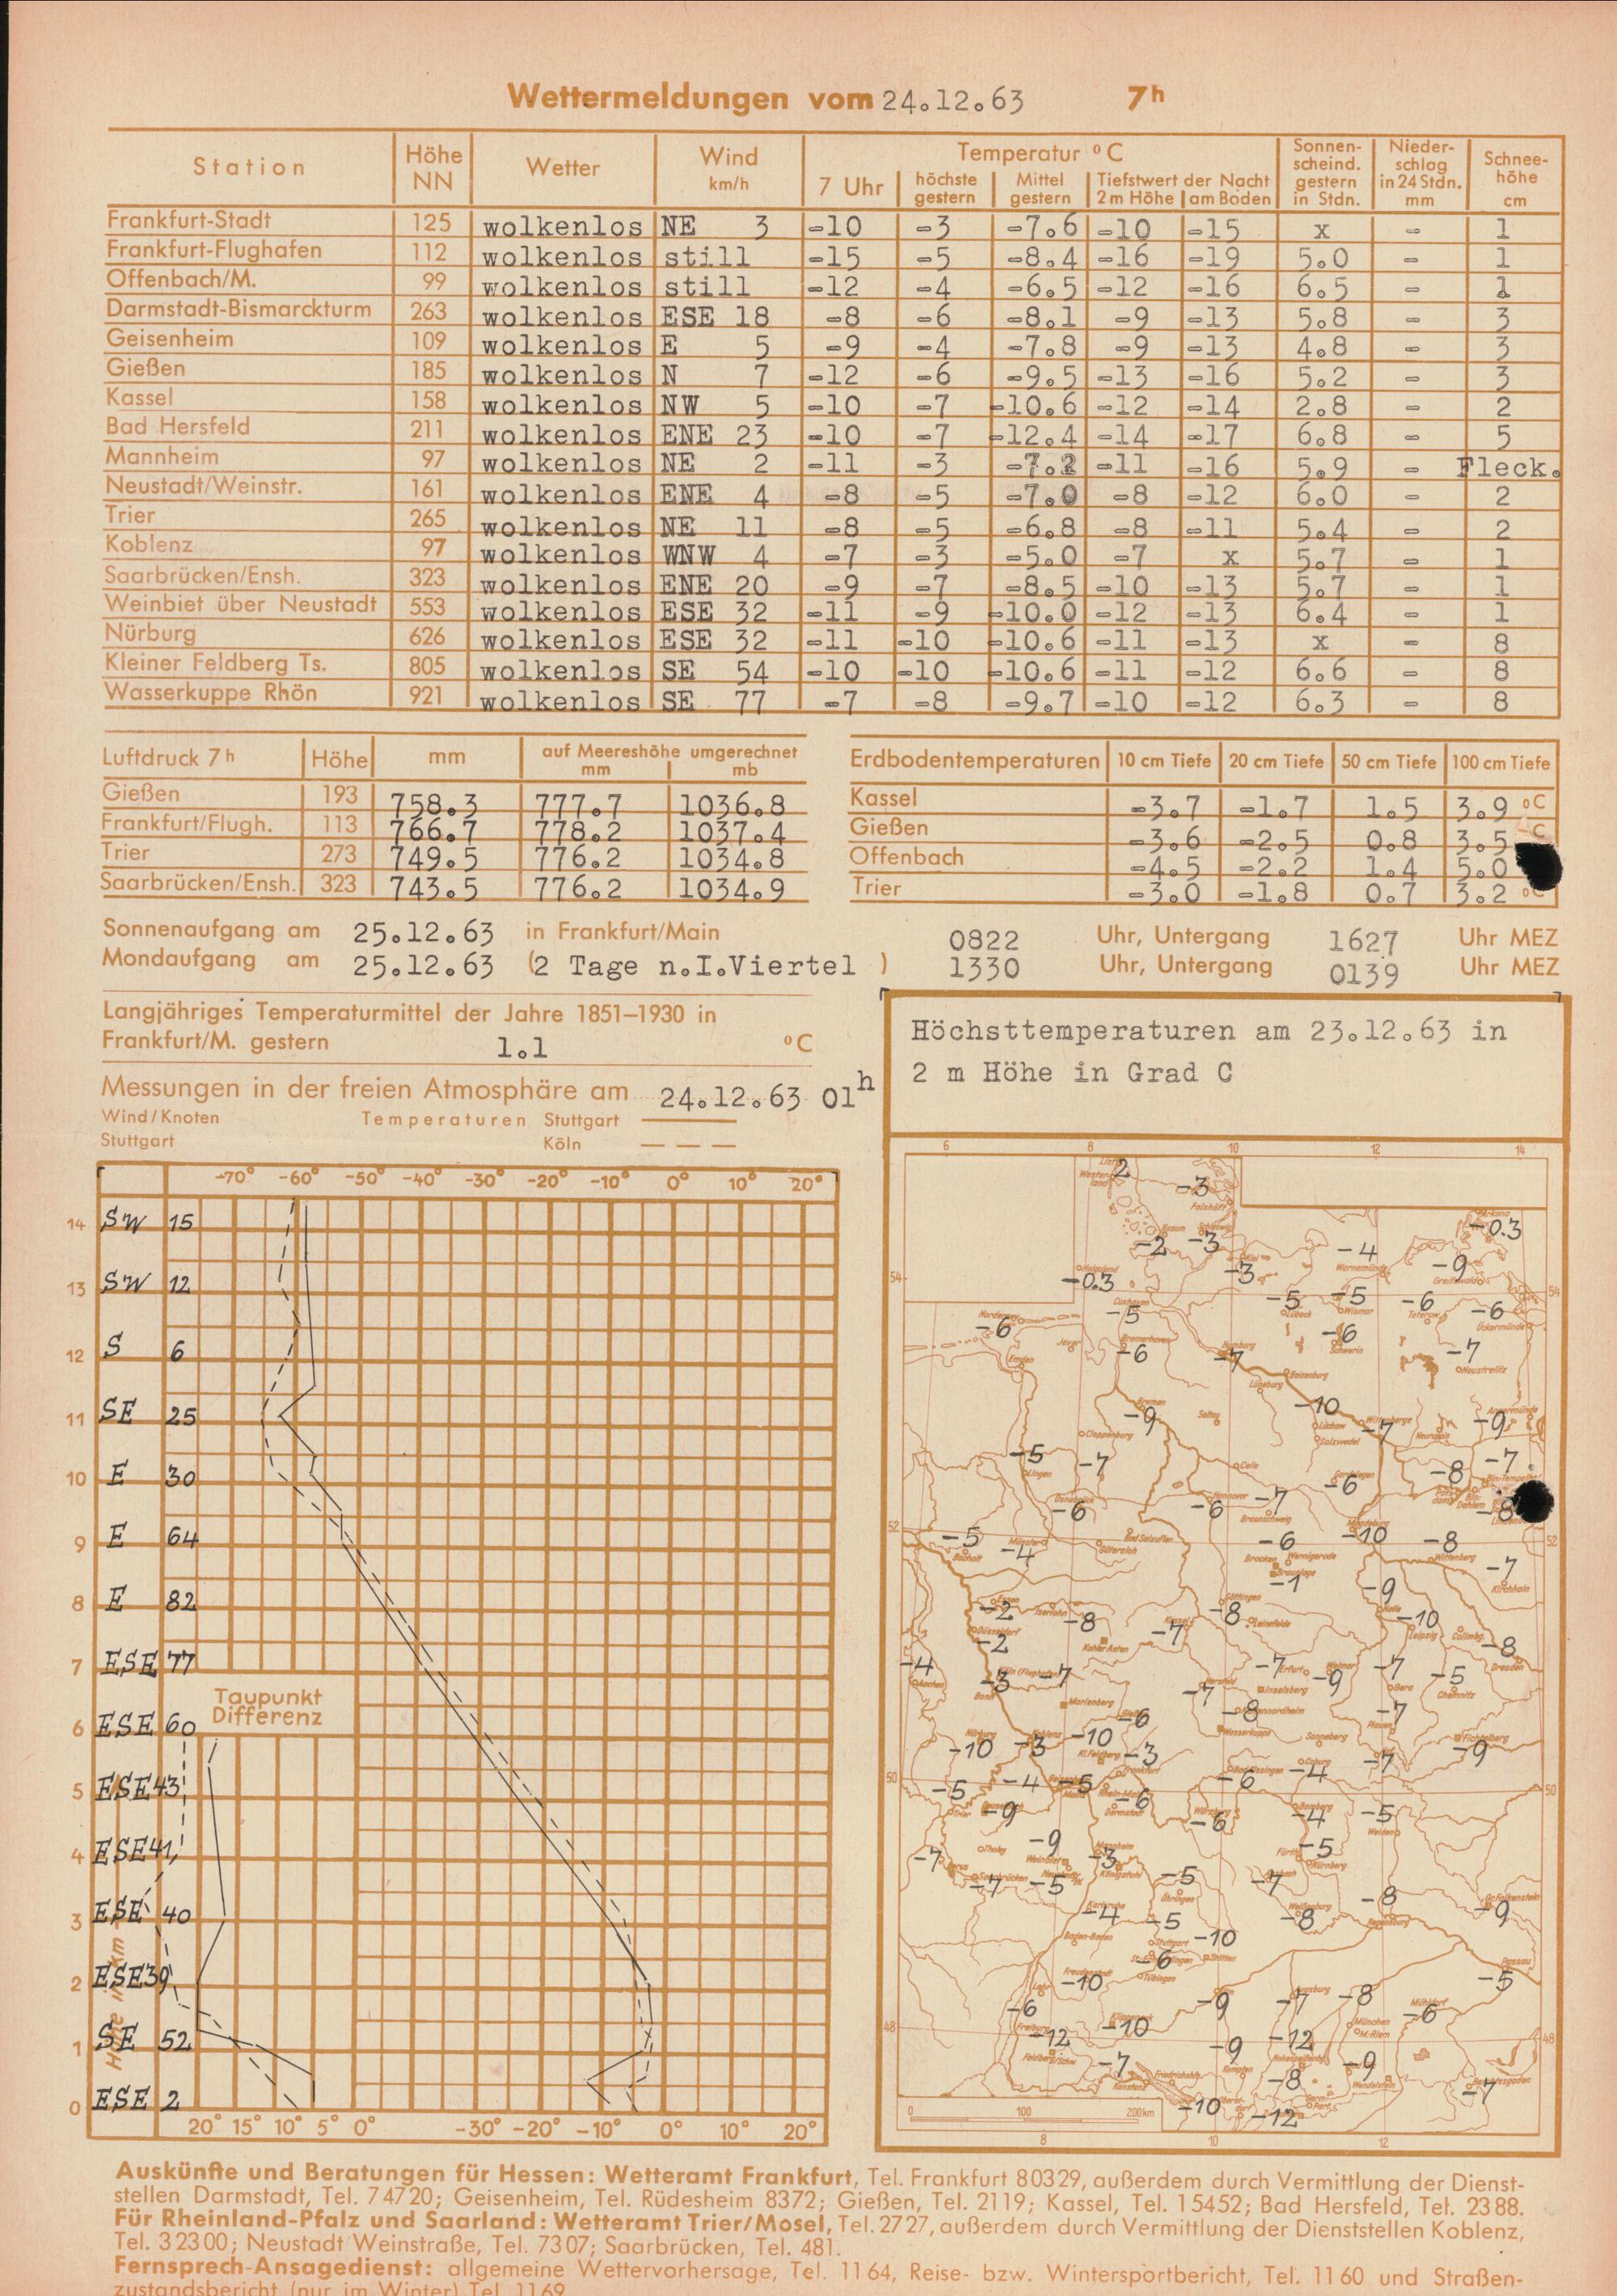 Wettermeldungen vom 24.12.63 7h
Station Höhe NN Wetter Wind km/h Temperatur °C Sonnenscheind. gestern in Stdn. Niederschlag in 24 Stdn. mm Schneehöhe cm
7 Uhr höchste gestern Mittel gestern Tiefstwert der Nacht 2m Höhe am Boden
Frankfurt-Stadt 125 wolkenlos NE 3 -10 -3 -7.6 -10 -15 x - 1
Frankfurt-Flughafen 112 wolkenlos still -15 -5 -8.4 -16 -19 5.0 - 1
Offenbach/M. 99 wolkenlos still -12 -4 -6.5 -12 -16 6.5 - 1
Darmstadt-Bismarckturm 263 wolkenlos ESE 18 -8 -6 -8.1 -9 -13 5.8 - 3
Geisenheim 109 wolkenlos E 5 -9 -4 -7.8 -9 -13 4.8 - 3
Gießen 185 wolkenlos N 7 -12 -6 -9.5 -13 -16 5.2 - 3
Kassel 158 wolkenlos NW 5 -10 -7 -10.6 -12 -14 2.8 - 2
Bad Hersfeld 211 wolkenlos ENE 23 -10 -7 -12.4 -14 -17 6.8 - 5
Mannheim 97 wolkenlos NE 2 -11 -3 -7.2 -11 -16 5.9 - Fleck.
Neustadt/Weinstr. 161 wolkenlos ENE 4 -8 -5 -7.0 -8 -12 6.0 - 2
Trier 265 wolkenlos NE 11 -8 -5 -6.8 -8 -11 5.4 - 2
Koblenz 97 wolkenlos WNW 4 -7 -3 -5.0 -7 x 5.7 - 1
Saarbrücken/Ensh. 323 wolkenlos ENE 20 -9 -7 -8.5 -10 -13 5.7 - 1
Weinbiet über Neustadt 553 wolkenlos ESE 32 -11 -9 -10.0 -12 -13 6.4 - 1
Nürburg 626 wolkenlos ESE 32 -11 -10 -10.6 -11 -13 x - 8
Kleiner Feldberg Ts. 805 wolkenlos SE 54 -10 -10 -10.6 -11 -12 6.6 - 8
Wasserkuppe Rhön 921 wolkenlos SE 77 -7 -8 -9.7 -10 -12 6.3 - 8
Luftdruck 7h Höhe mm auf Meereshöhe umgerechnet mm mb
Gießen 193 758.3 777.7 1036.8
Frankfurt/Flugh. 113 766.7 778.2 1037.4
Trier 273 749.5 776.2 1034.8
Saarbrücken/Ensh. 323 743.5 776.2 1034.9
Erdbodentemperaturen 10 cm Tiefe 20 cm Tiefe 50 cm Tiefe 100 cm Tiefe
Kassel -3.7 -1.7 1.5 3.9 °C
Gießen -3.6 -2.5 0.8 3.5 °C
Offenbach -4.5 -2.2 1.4 5.0
Trier -3.0 -1.8 0.7 3.2 °C
Sonnenaufgang am 25.12.63 in Frankfurt/Main 0822 Uhr, Untergang 1627 Uhr MEZ
Mondaufgang am 25.12.63 (2 Tage n.I.Viertel ) 1330 Uhr, Untergang 0139 Uhr MEZ
Langjähriges Temperaturmittel der Jahre 1851–1930 in
Frankfurt/M. gestern 1.1 °C
Messungen in der freien Atmosphäre am 24.12.63 01h
Wind/Knoten Temperaturen Stuttgart
Stuttgart Köln
-70° -60° -50° -40° -30° -20° -10° 0° 10° 20°
14 SW 15
13 SW 12
12 S 6
11 SE 25
10 E 30
9 E 64
8 E 82
7 ESE 77
Taupunkt
Differenz
6 ESE 60
5 ESE 43
4 ESE 41
3 ESE 40
2 ESE 39
1 SE 52
0 ESE 2
Höhe in km
20° 15° 10° 5° 0° -30° -20° -10° 0° 10° 20°
Höchsttemperaturen am 23.12.63 in
2 m Höhe in Grad C
6 8 10 12 14
2 -3
-2 -3 -4 -0.3
54 -0.3 -3 -9 54
-6 -5 -5 -5 -6 -6
-6 -7 -6 -7
-9 -10 -7 -9
-5 -7 -6 -8 -7
-6 -6 -7 -8
52 -5 -4 -6 -10 -8 52
-1 -9 -7
-2 -8 -8 -10
-2 -7 -8
-4 -3 -7 -7 -7 -9 -7 -5
-6 -8 -7
-10 -3 -10 -3 -7 -9
50 -5 -4 -5 -6 -6 -4 50
-9 -6 -4 -5
-7 -9 -3 -5
-7 -5 -5 -7 -8
-4 -5 -8 -9
-6 -10
-10 -5
-6 -9 -7 -8 -6
48 -12 -10 -12 48
-7 -9 -9
-8 -7
-10 -12
0 100 200km
8 10 12
Auskünfte und Beratungen für Hessen: Wetteramt Frankfurt, Tel. Frankfurt 80329, außerdem durch Vermittlung der Dienst-
stellen Darmstadt, Tel. 74720; Geisenheim, Tel. Rüdesheim 8372; Gießen, Tel. 2119; Kassel, Tel. 15452; Bad Hersfeld, Tel. 2388.
Für Rheinland-Pfalz und Saarland: Wetteramt Trier/Mosel, Tel. 2727, außerdem durch Vermittlung der Dienststellen Koblenz,
Tel. 32300; Neustadt Weinstraße, Tel. 7307; Saarbrücken, Tel. 481.
Fernsprech-Ansagedienst: allgemeine Wettervorhersage, Tel. 1164, Reise- bzw. Wintersportbericht, Tel. 1160 und Straßen-
zustandsbericht (nur im Winter) Tel. 1169